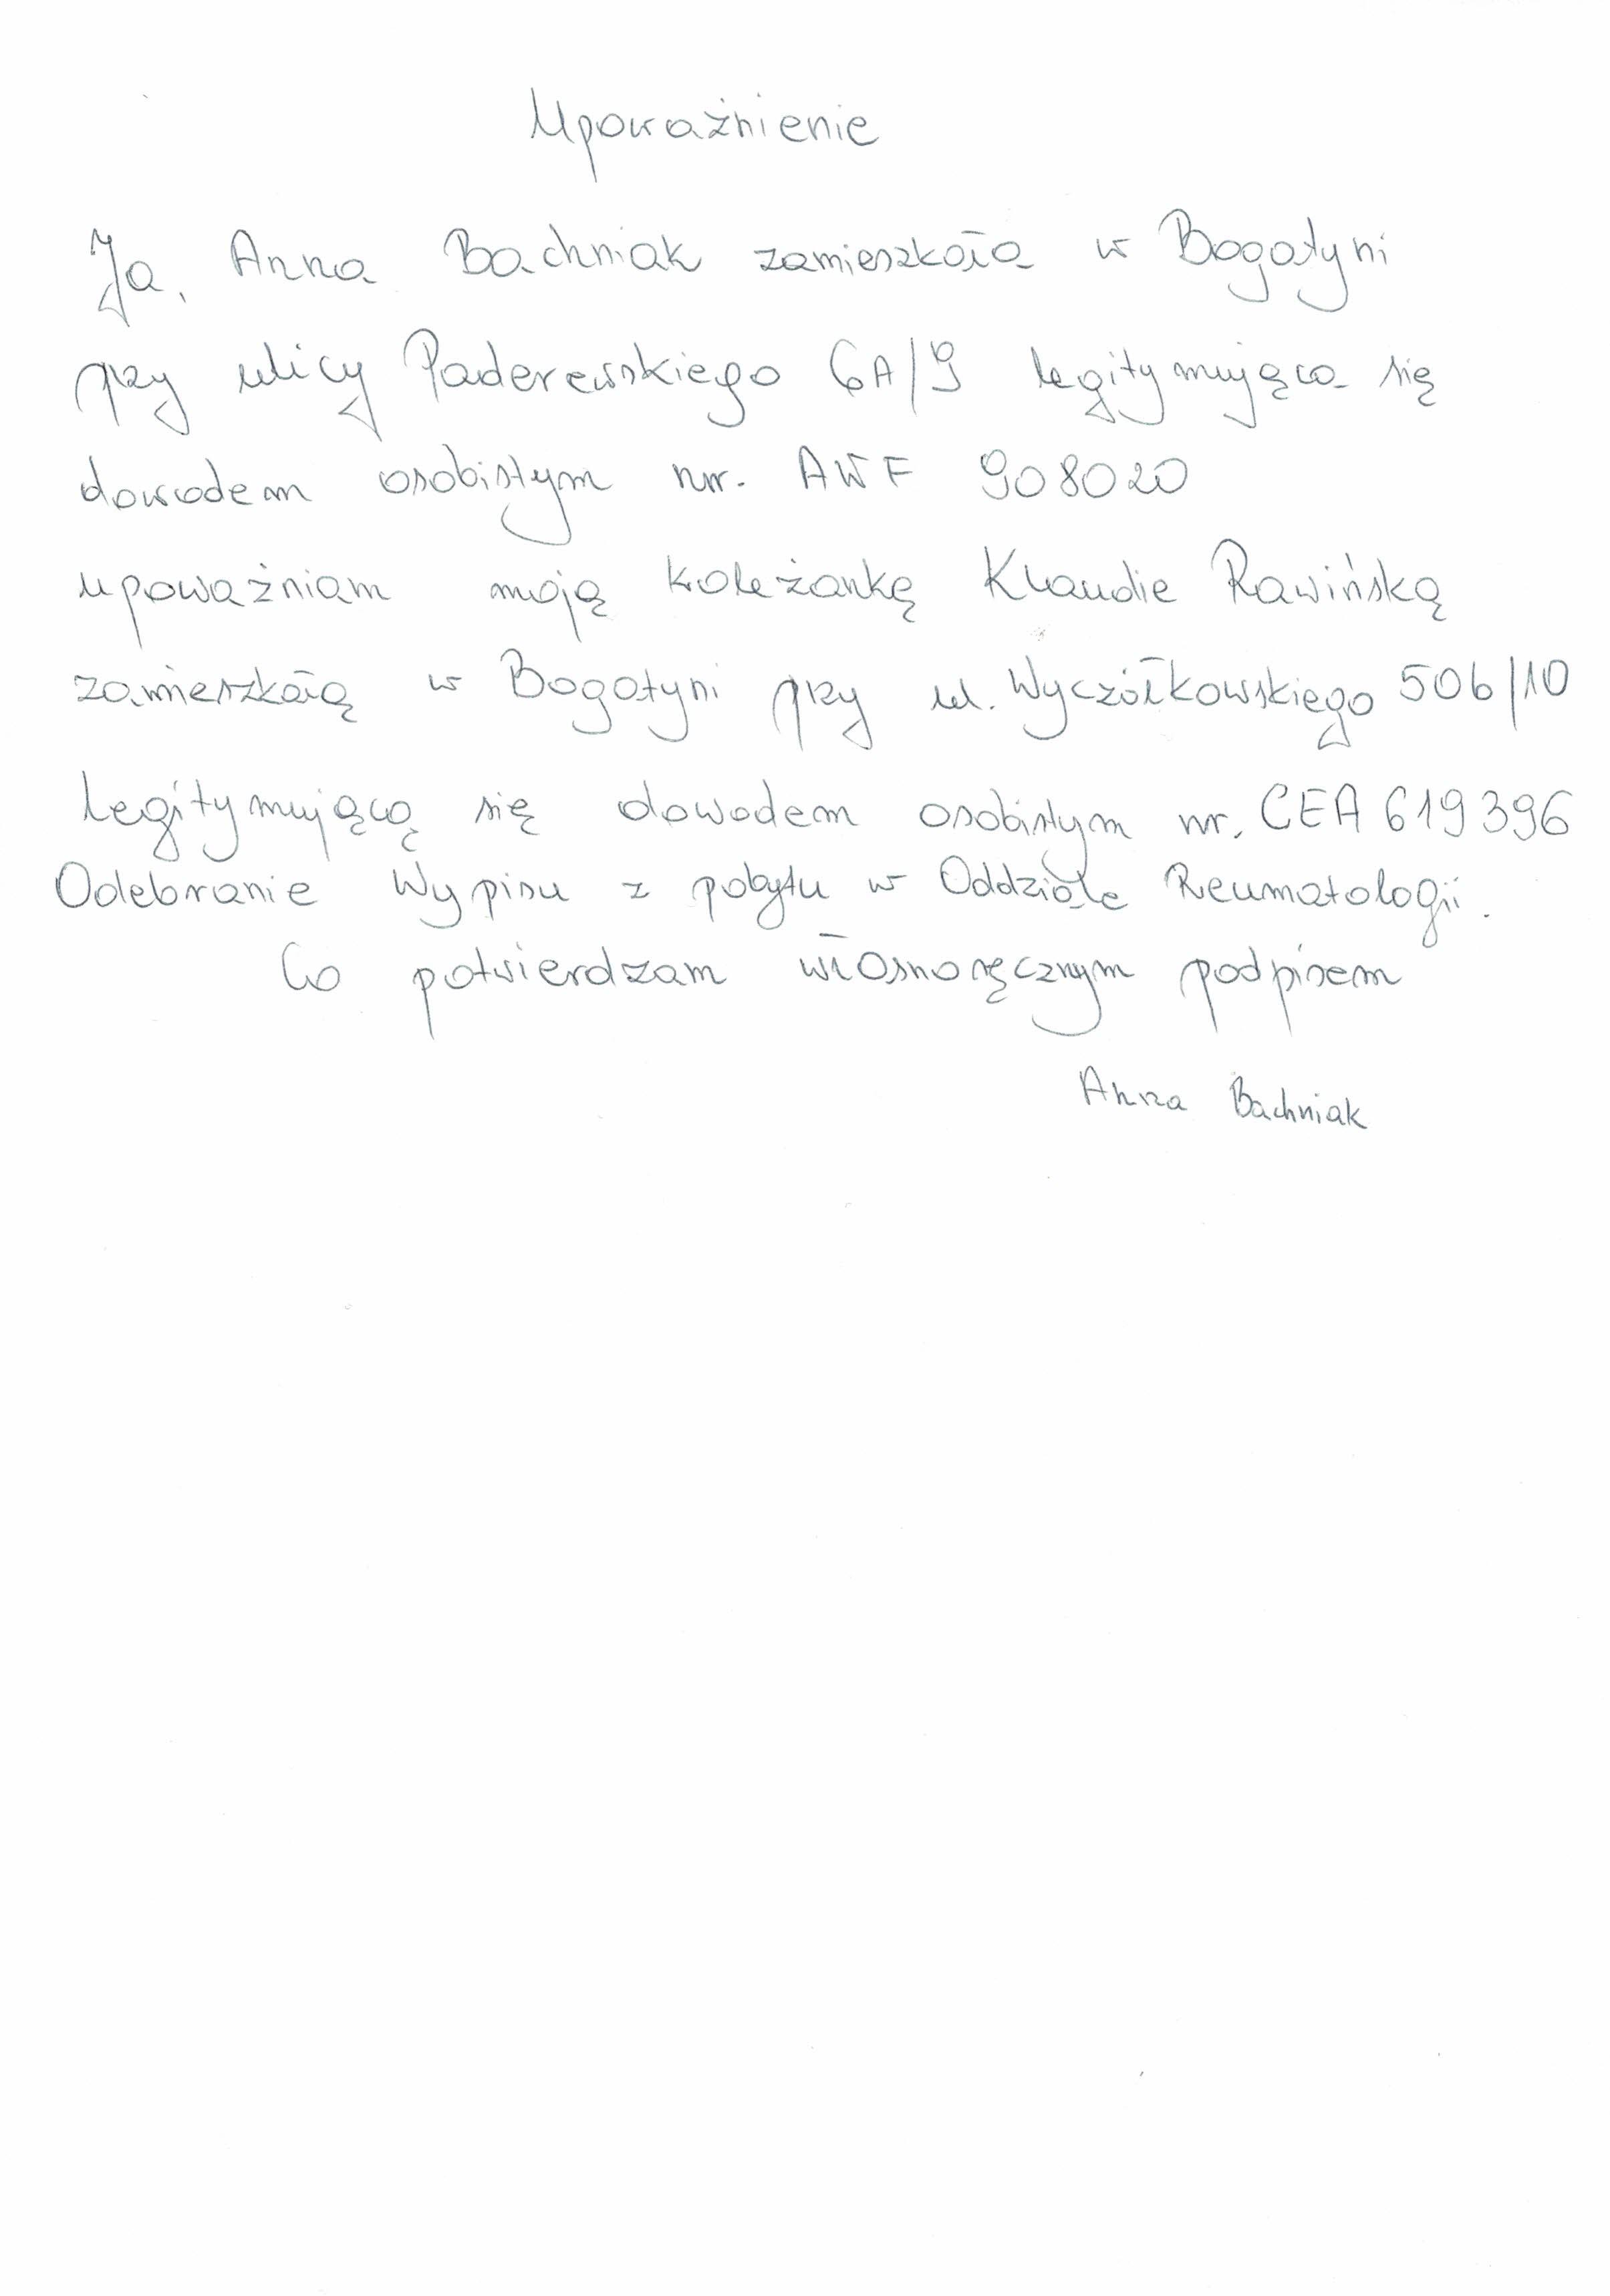 Upoważnienie
Ja, Anna Bachniak zamieszkała w Bogatyni
przy ulicy Paderewskiego 6A/9 legitymująca się
dowodem osobistym nr. AWF 908020
upoważniam moją koleżankę Klaudie Rawińską
zamieszkałą w Bogatyni przy ul. Wyczółkowskiego 506/10
legitymującą się dowodem osobistym nr. CEA 619396
Odebranie Wypisu z pobytu w Oddziale Reumatologii.
Co potwierdzam własnoręcznym podpisem
Anna Bachniak